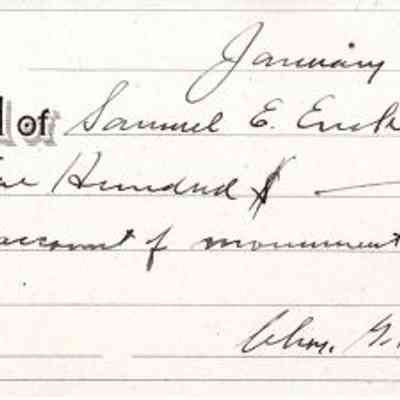 January
of Samuel E.
Hundred $
account of monument
Chas. G.